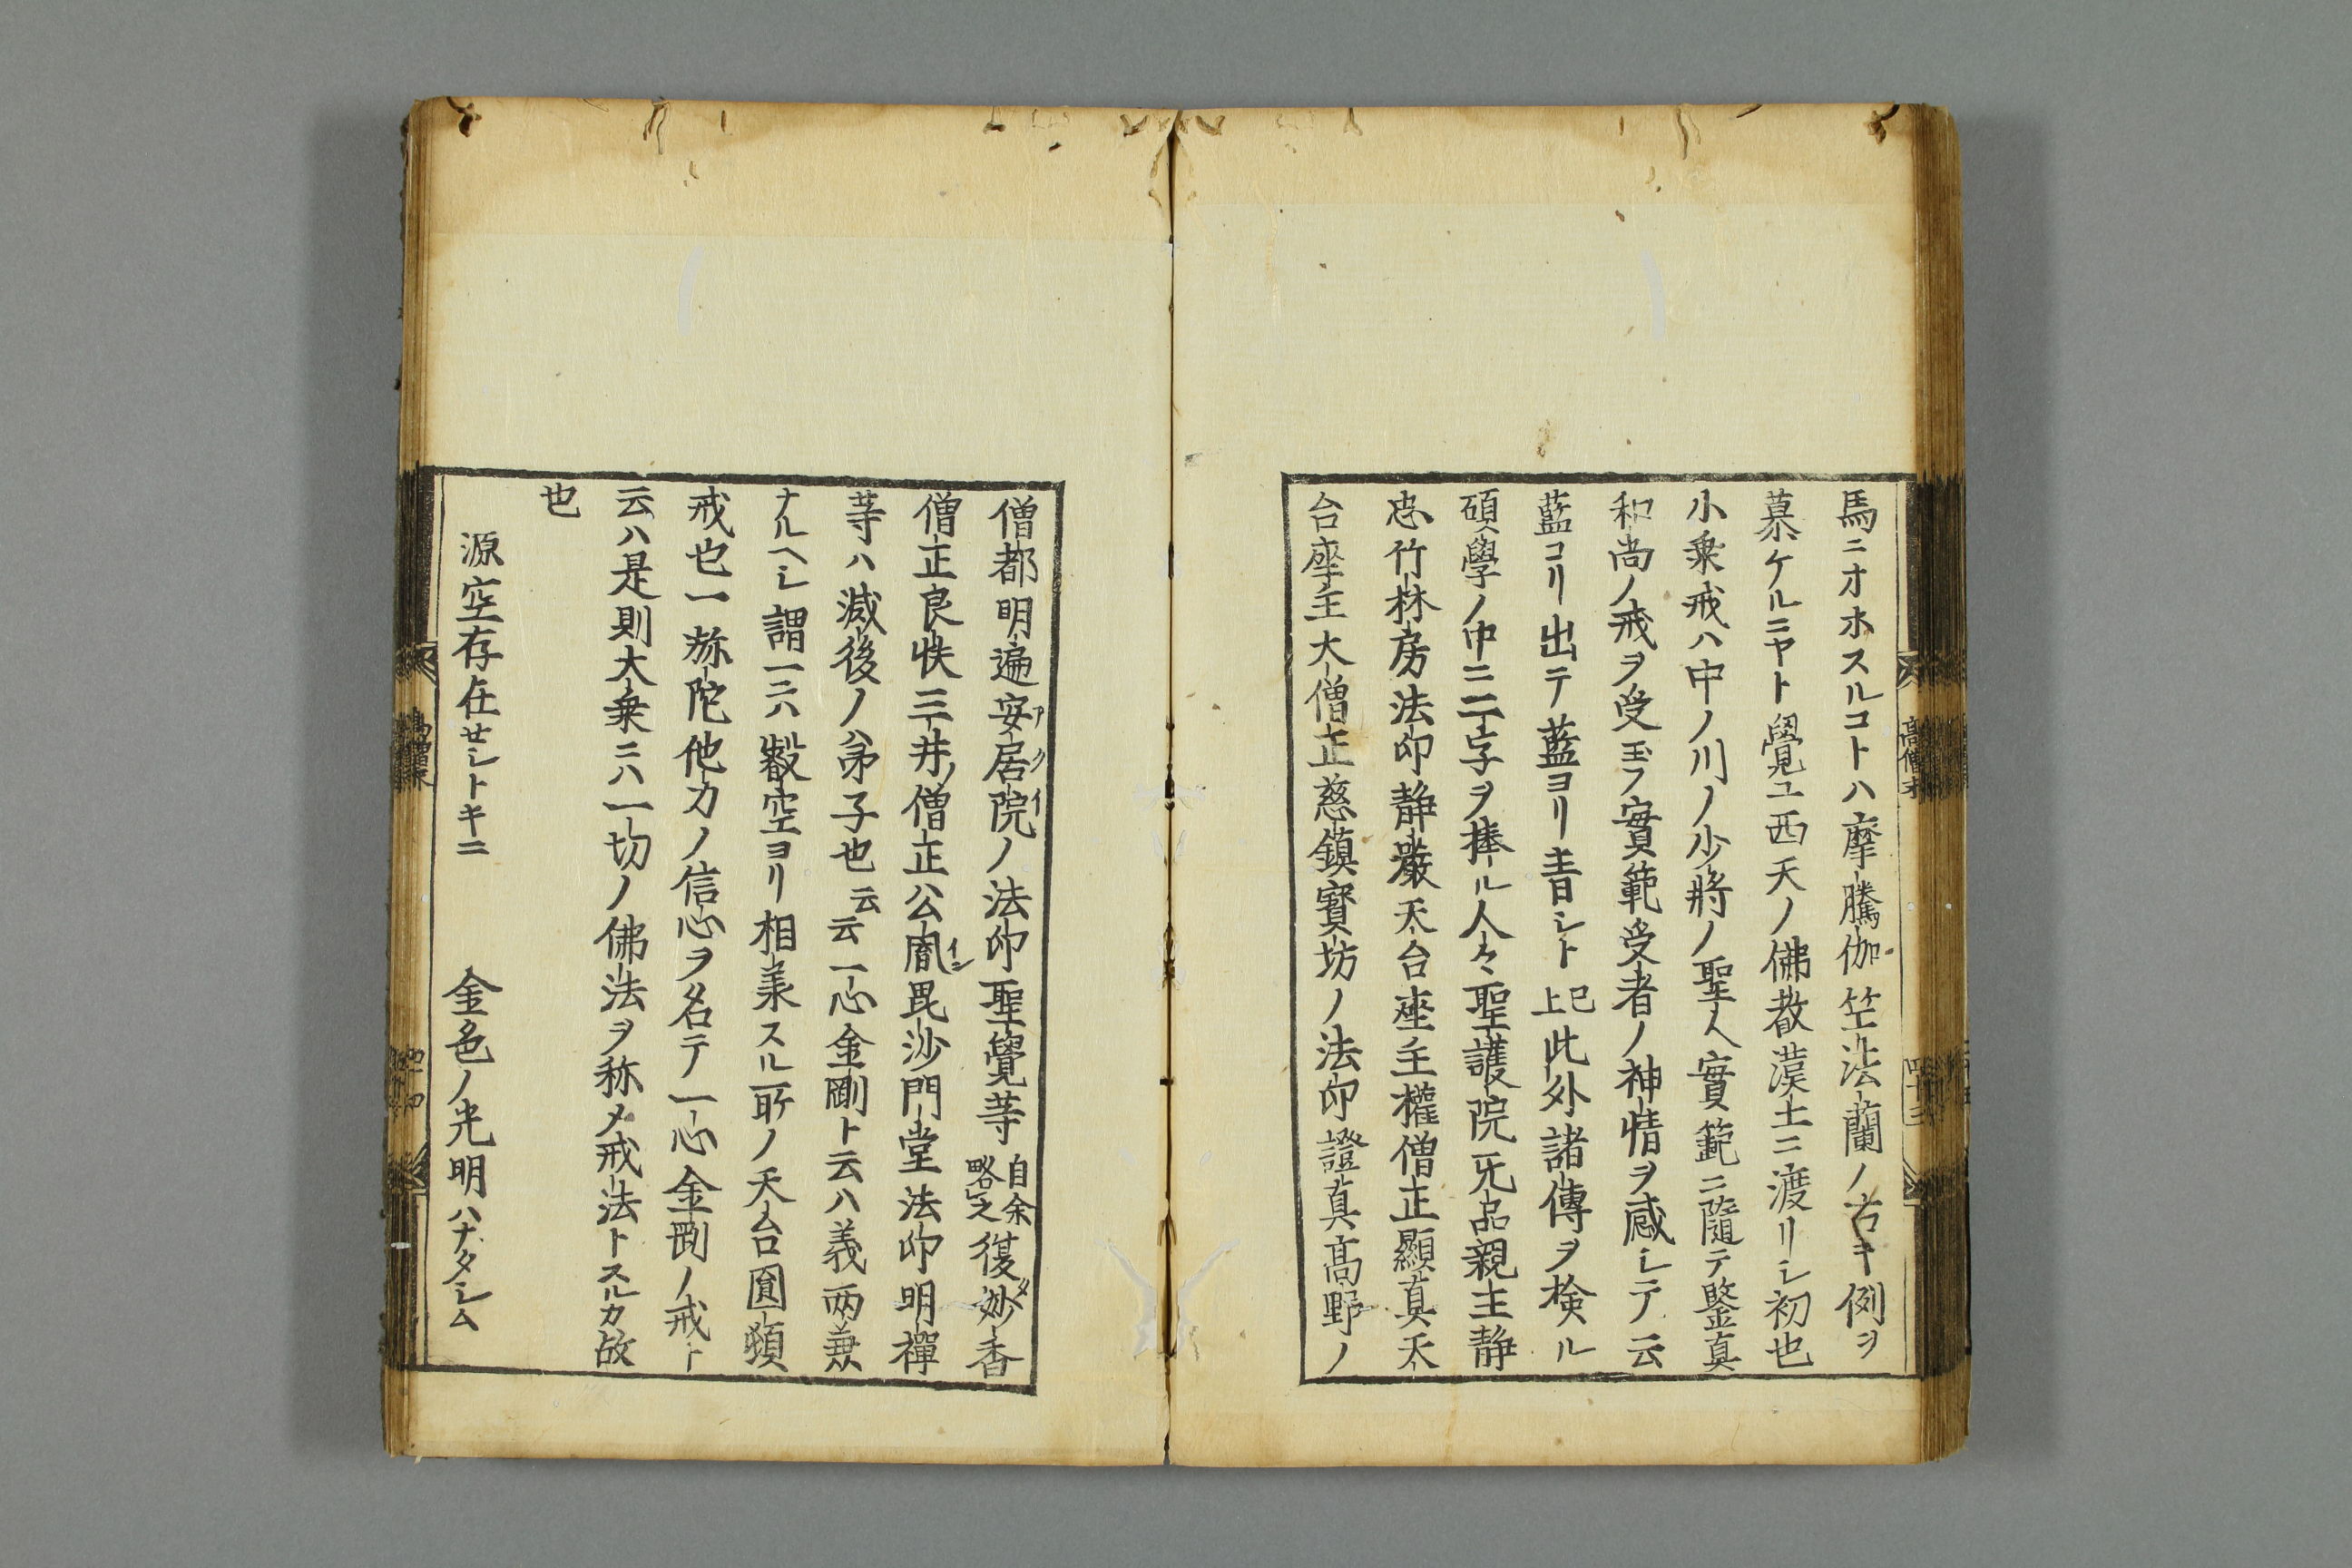 馬ニオホスルコトハ摩騰伽竺法蘭ノ古キ例ヲ
慕ケルニヤト覺ユ西天ノ佛教漢土ニ渡リシ初也
小乗戒ハ中ノ川ノ少將ノ聖人實範ニ隨テ鑒真
和尚ノ戒ヲ受玉フ實範受者ノ神情ヲ感シテ云
藍コリ出テ藍ヨリ青シト已上此外諸傳ヲ検ル
碩學ノ中ニ二字ヲ捧ル人々聖護院无品親王静
忠竹林房法印静嚴天台座主權僧正顯真天
台座主大僧正慈鎮寳坊ノ法印證真高野ノ
僧都明遍安居院ノ法印聖覺等自余略之復妙香
僧正良快三井ノ僧正公胤毘沙門堂法印明禪
等ハ滅後ノ弟子也云云一心金剛ト云ハ義兩兼
ナルヘシ謂一ニハ叡空ヨリ相美スル所ノ天台圓頓
戒也一弥陀他力ノ信心ヲ名テ一心金剛ノ戒ト
云ハ是則大乗ニハ一切ノ佛法ヲ称メ戒法トスルカ故
也
源空存在セシトキニ　金色ノ光明ハナタシム
高僧末
四十三